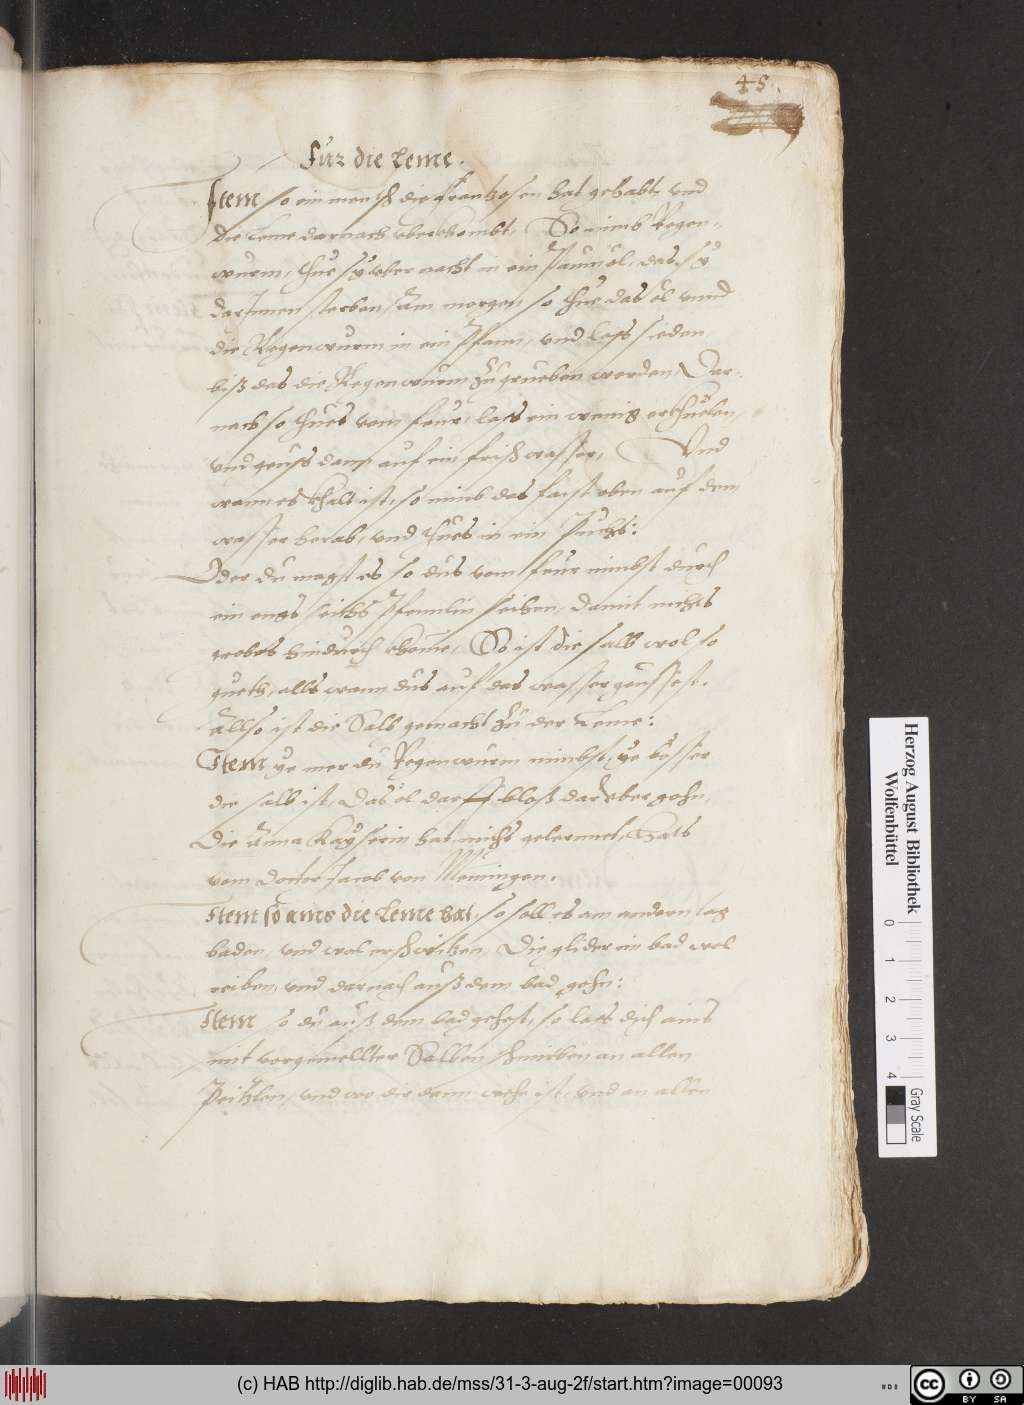 45.
Für die Leme.
Item so ein mensch die Frantzosen hat gehabt, und
die Leme darnach uberkombt, So nimb Regen-
wurm, thue sÿ uber nacht in ein Paumöl, das sÿ
darJnnen sterben, Am morgen so thue das öl unnd
die Regenwurm in ein Pfann, und lass sieden
biß das die Regenwurm zu grueben werden, Dar-
nach so thues vom feur, lass ein wenig erkhuelen,
und geuss dann auf ein frisch wasser, Und
wann es khalt ist, so nimb das faist oben auf dem
wasser herab, und thues in ein Puchs:
Oder du magst es so dus vom feur nimbst durch
ein engs Pfennlin seihen, damit nichts
grobes hindurch khome, So ist die salb wol so
gueth, alls wann dus auf das wasser geussest.
Allso ist die Salb gemacht zu der Leme:
Item ye mer du Regenwurm nimbst, ye besser
die salb ist, Das öl darff bloß darüber gohn,
Die Anna Kayserin hat michs gelernnet, hats
vom Doctor Jacob von Meiningen.
Item so ains die Leme hat, so soll es am andern tag
baden, und wol erschwitzen, Die glider im bad wol
reiben, und darnach auß dem bad gohn:
Item so du auß dem bad gehest, so lass dich ains
mit vorgemellter Salben schmirben an allen
und wo dir dann wehe ist, und an allen
Herzog August Bibliothek
Wolfenbüttel
0
1
2
3
4
Gray Scale
(c) HAB http://diglib.hab.de/mss/31-3-aug-2f/start.htm?image=00093
cc
BY SA